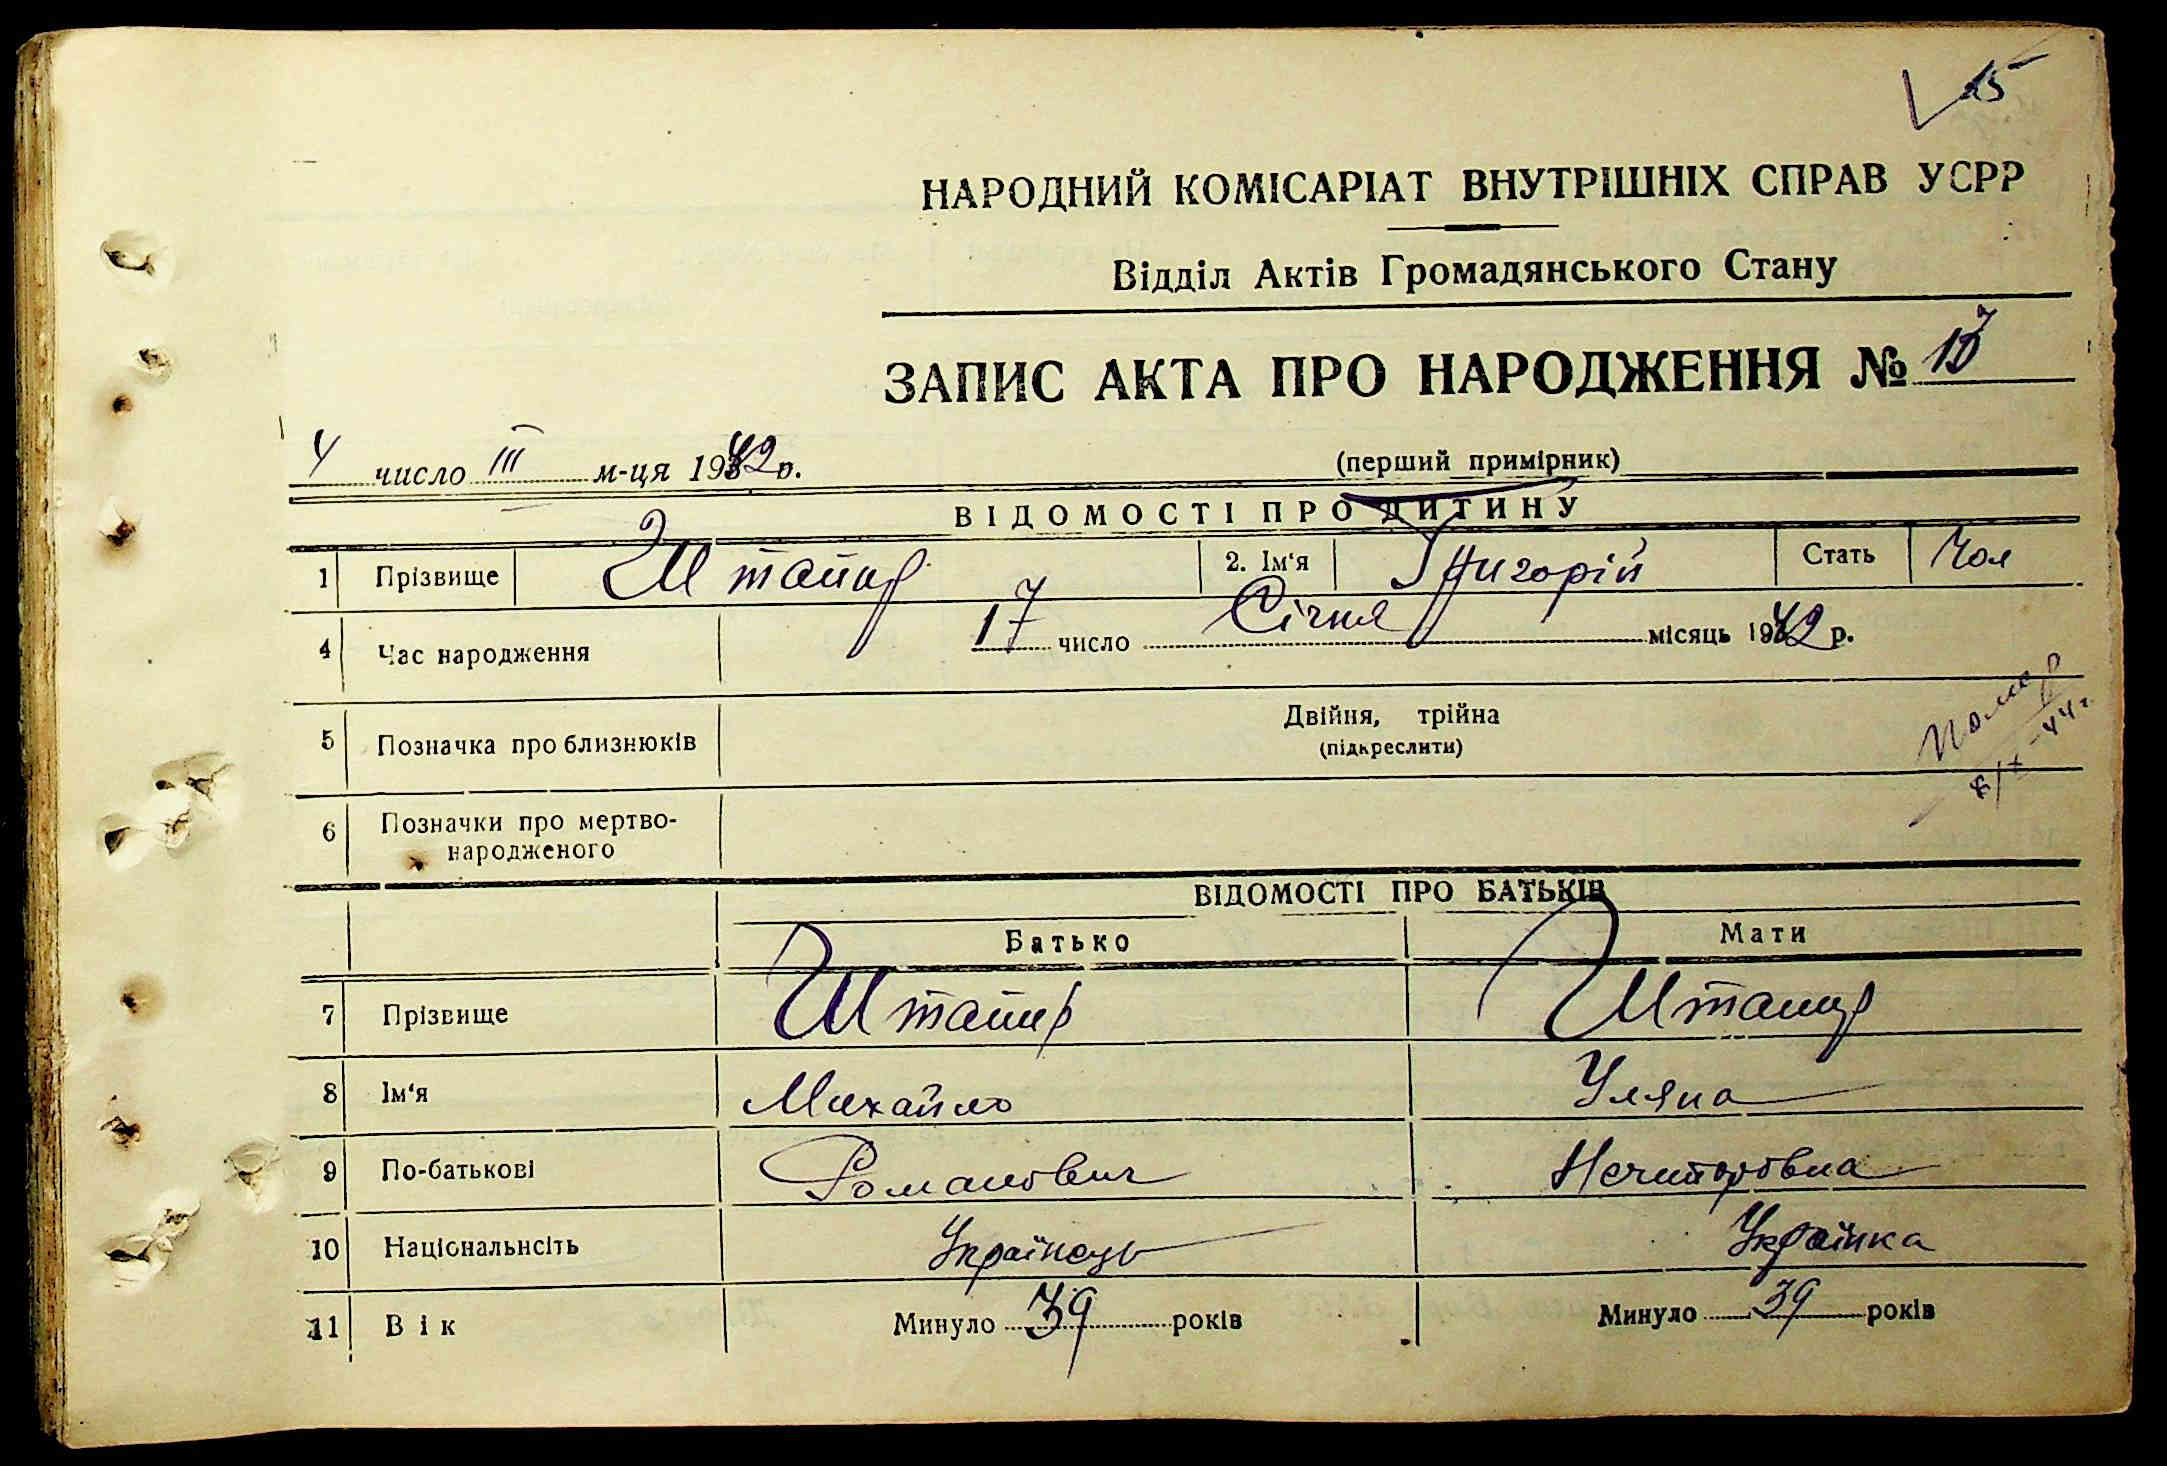 15
НАРОДНИЙ КОМІСАРІАТ ВНУТРІШНІХ СПРАВ УСРР
Відділ Актів Громадянського Стану
ЗАПИС АКТА ПРО НАРОДЖЕННЯ №
4 число III м-ця 1942 р.
(перший примірник)
ВІДОМОСТІ ПРО ДИТИНУ
1 Прізвище Штапир 2. Ім'я Григорій Стать Чол
4 Час народження 17 число Січня місяць 1942 р.
5 Позначка про близнюків Двійня, трійна
(підкреслити)
Помер
6 Позначки про мертво-
народженого
ВІДОМОСТІ ПРО БАТЬКІВ
Батько Мати
7 Прізвище Штапир Штапир
8 Ім'я Михайло Уляна
9 По-батькові Романович Нечипоровна
10 Національнсіть Українець Українка
11 Вік Минуло 39 років Минуло 39 років